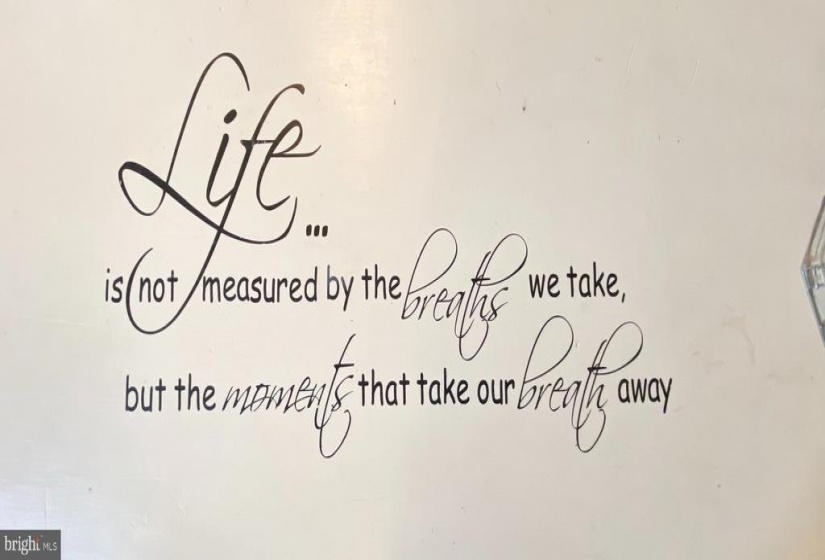 Life...
is not measured by the breaths we take,
but the moments that take our breath away
bright MLS